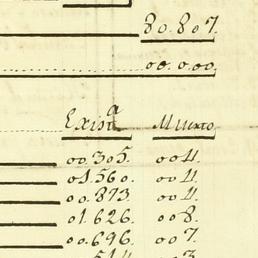 80.807.
00.000.
Exista Muuto
00.305. 004.
01.560. 004.
00.873. 004.
01.626. 008.
00.696. 007.
514 003.